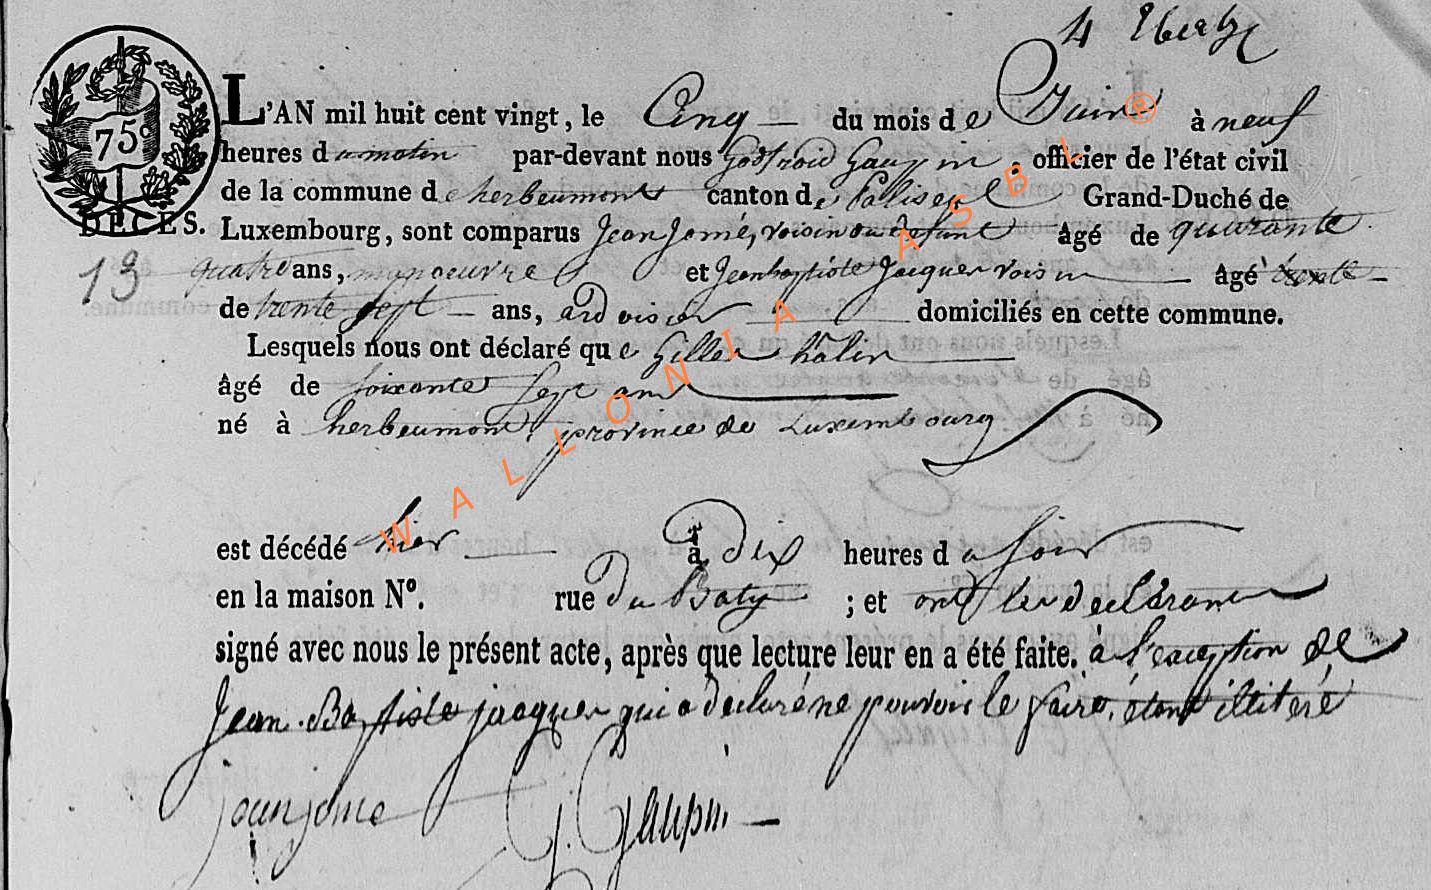 4
75c
L'AN mil huit cent vingt, le Cinq du mois de Juin à neuf
heures du matin par-devant nous Godfroid Gaupin, officier de l'état civil
de la commune de herbeumont canton de Paliseul Grand-Duché de
DÉCÈS. Luxembourg, sont comparus Jean Jomé, voisin du defunt âgé de quarante
13 quatre ans, manoeuvre et Jean baptiste Jacques voisin âgé trente
de trente sept ans, ardoisier domiciliés en cette commune.
Lesquels nous ont déclaré que Gilles
âgé de soixante sept ans
né à herbeumont, province de Luxembourg
est décédé hier à Dix heures du soir
en la maison No. rue Du Baty ; et ont les declarans
signé avec nous le présent acte, après que lecture leur en a été faite. à l'exception de
Jean-Baptiste jacques qui a declaré ne pouvoir le faire, étant illitéré
jean jome G. Gaupin
WALLONIA ASBL @